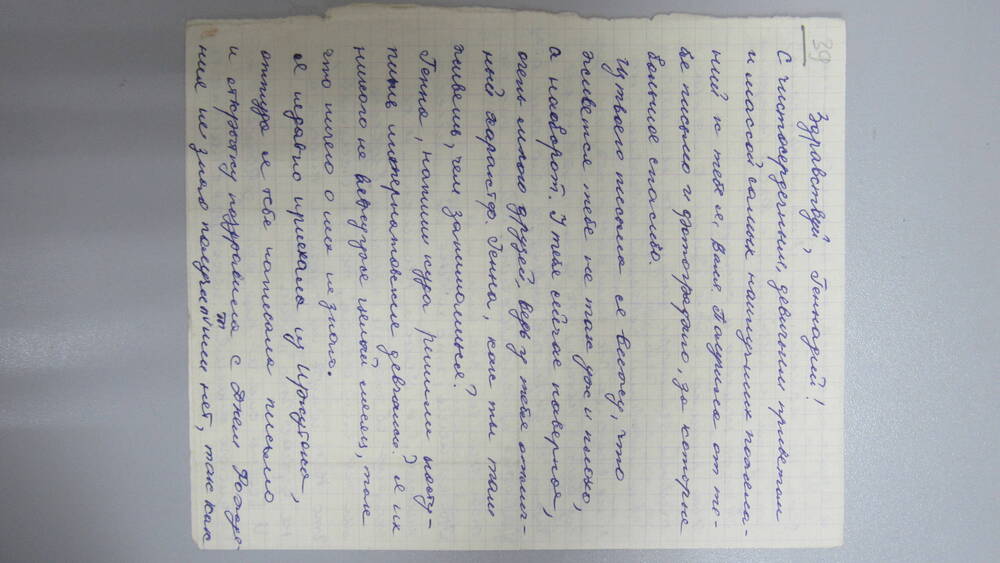 39
Здравствуй, Геннадий!
С чистосердечным, девичьим приветом
и массой самых наилучших пожела-
ний к тебе я, Валя. Получила от те-
бя письмо и фотографию, за которые
большое спасибо.
Из твоего письма я вижу, что
живется тебе не так уж и плохо,
а наоборот. У тебя сейчас наверное,
очень много друзей, ведь у тебя отлич-
ный характер. Генна, как ты там
живешь, чем занимаешься?
Генна, напиши куда решили посту-
пить интернатовские девчонки? Я их
никого не вижу уже целый месяц, так
что ничего о них не знаю.
Я недавно приехала из Иркутска,
оттуда я тебе написала письмо
и открытку поздравила с Днем Рожде-
ния не знаю получил ты или нет, так как